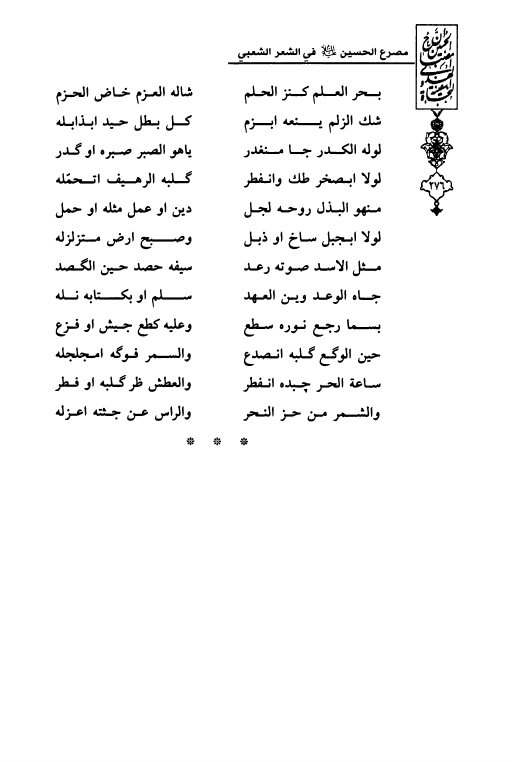 مصرع الحسين في الشعر الشعبي
٢٧٦
بحر العلم كنز الحلم شاله العزم خاض الحزم
شك الزلم ينعه ابزم كل بطل حيد ابذابله
لوله الكدر جا منغدر ياهو الصبر صبره او گدر
لولا ابصخر طك وانفطر گلبه الرهيف اتحمّله
منهو البذل روحه لجل دين او عمل مثله او حمل
لولا ابجبل ساخ او ذبل وصبح ارض متزلزله
مثل الاسد صوته رعد سيفه حصد حين الگصد
جاه الوعد وين العهد سلم او بكتابه نله
بسما رجع نوره سطع وعليه كطع جيش او فزع
حين الوگع گلبه انصدع والسمر فوگه امجلجله
ساعة الحر چبده انفطر والعطش ظر گلبه او فطر
والشمر من حز النحر والراس عن جثته اعزله
* * *